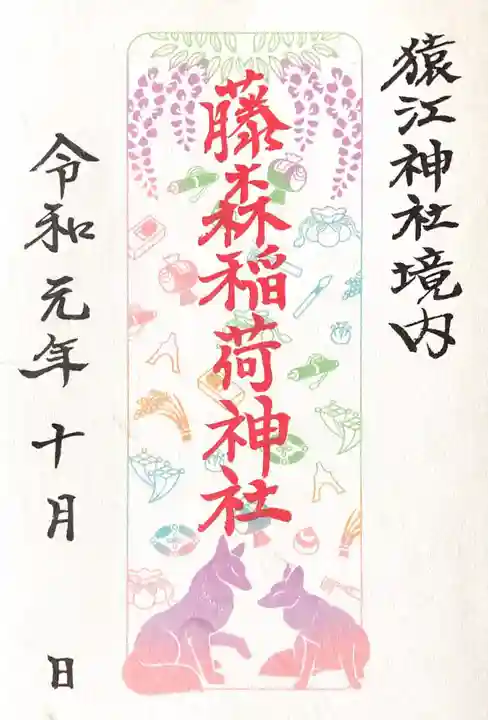 猿江神社境内
藤森稲荷神社
令和元年十月　日